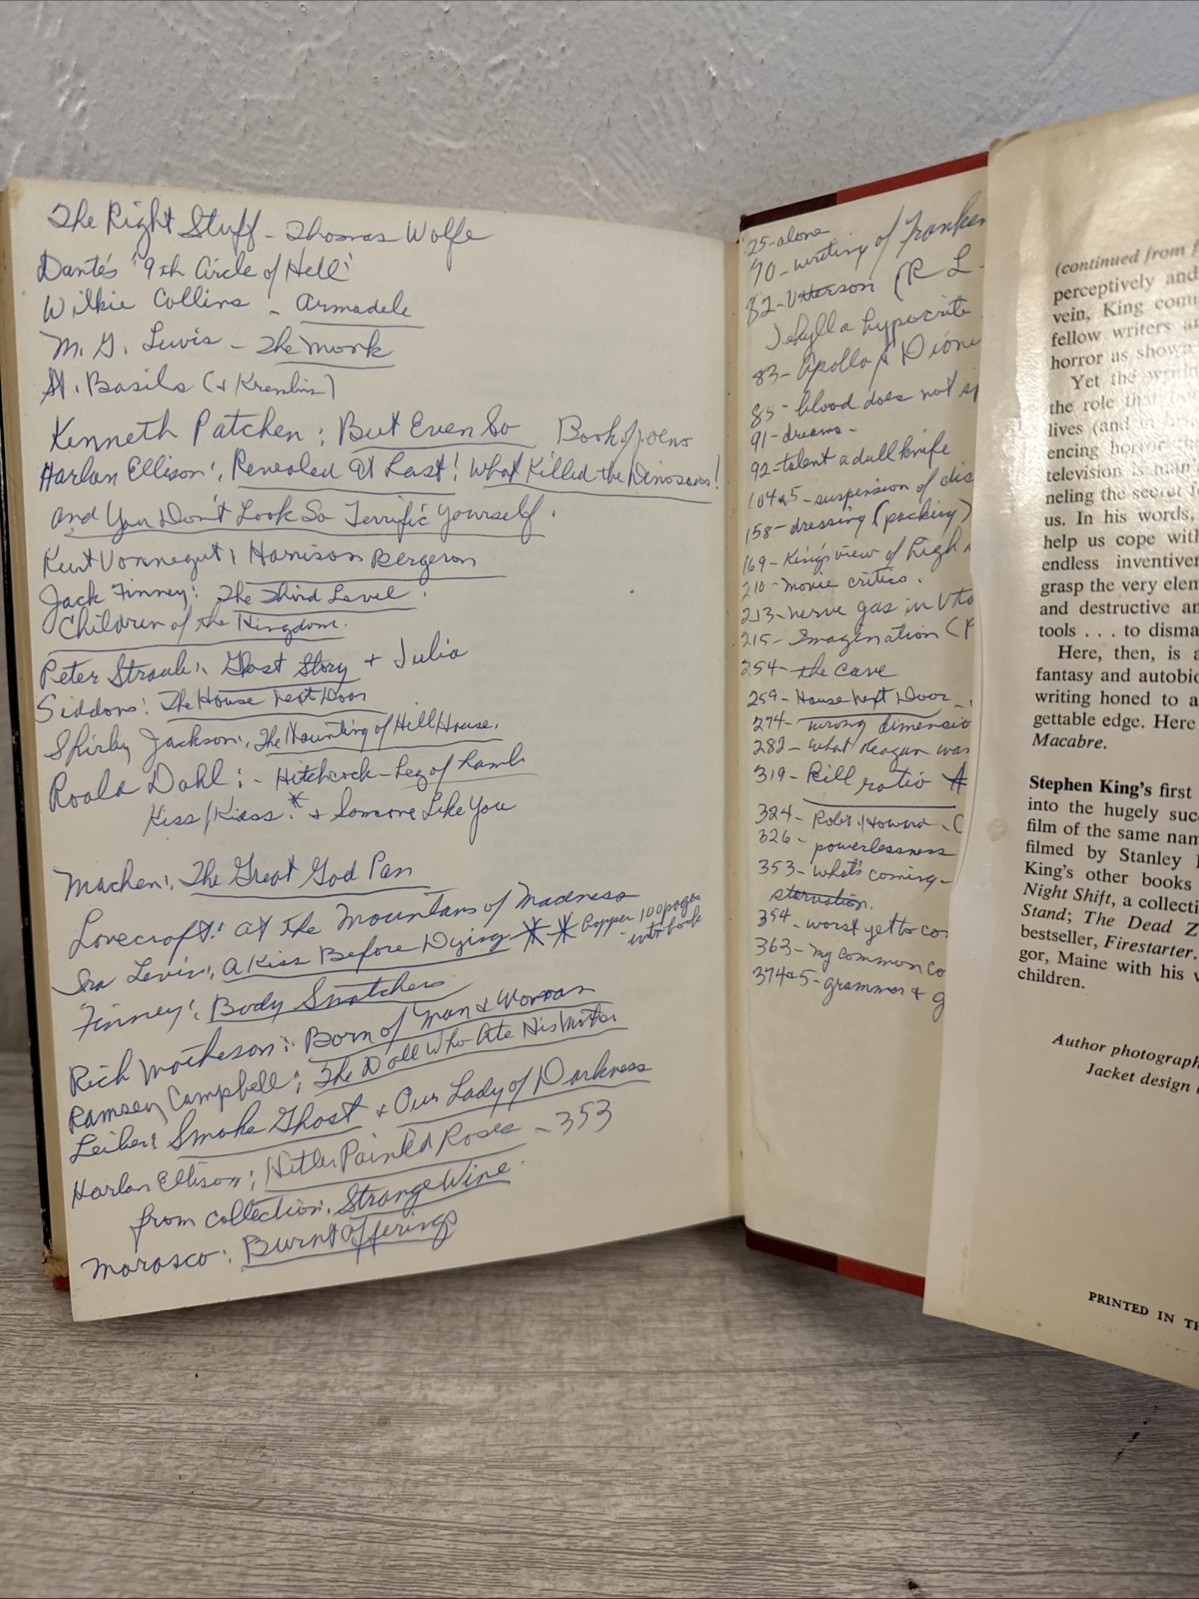 The Right Stuff - Thomas Wolfe
Dante's '9th Circle of Hell'
Wilkie Collins - Armadele
M. G. Lewis - The Monk
St. Basils (+ Kremlin)
Kenneth Patchen: But Even So Book of poems
Harlan Ellison: Revealed at Last! What Killed the Dinosaurs!
and You Don't Look So Terrific Yourself.
Kurt Vonnegut: Harrison Bergeron
Jack Finney: The Third Level.
Children of the Kingdom.
Peter Straub: Ghost Story + Julia
Siddons: The House Next Door
Shirley Jackson: The Haunting of Hill House.
Roald Dahl: - Hitchcock - Leg of Lamb
Kiss/Kiss * + Someone Like You
Machen: The Great God Pan
Lovecraft: At the Mountains of Madness
Ira Levin: A Kiss Before Dying ** 100 pages
into book
Finney: Body Snatchers
Rich Matheson: Born of Man & Woman
Ramsey Campbell: The Doll Who Ate His Mother
Leiber: Smoke Ghost + Our Lady of Darkness
Harlan Ellison: Hitler Painted Roses - 353
from collection: Strange Wine.
Marasco: Burnt Offerings
25-alone
70-writing of Franken
82-Utterson (R L-
Jekyll a hypocrite
83- Apollo & Dioni
85- blood does not
91-dreams-
92-talent a dull knife
104+5-suspension of dis
158-dressing (packing)
169-King's view of high
210-movie critics.
213-nerve gas in Uta
215- Imagination (
254-the cave
259-House Next Door
274- wrong dimensio
282-what Reagan was
319- Kill ratio
324- Robt. Howard - (
326- powerlessness
353-what's coming-
starvation.
354- worst yet to co
363- my common co
374+5-grammar + g
(continued from f
perceptively and
vein, King com
fellow writers a
horror as shown
Yet the writi
the role that
lives (and in
encing horror
television is man
neling the secret f
us. In his words,
help us cope with
endless inventiver
grasp the very elem
and destructive an
tools . . . to disma
Here, then, is a
fantasy and autobio
writing honed to a
gettable edge. Here
Macabre.
Stephen King's first
into the hugely succ
film of the same nam
filmed by Stanley
King's other books
Night Shift, a collecti
Stand; The Dead Z
bestseller, Firestarter.
gor, Maine with his w
children.
Author photograph
Jacket design
PRINTED IN TH